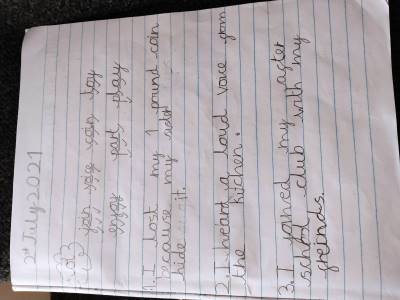 2nd July 2021
join voice coin boy
enjoy part play
1. I lost my 1 pound coin
because my sister
hide it.
2. I heard a loud voice from
the kitchen.
3. I joined my after
school club with my
freinds.